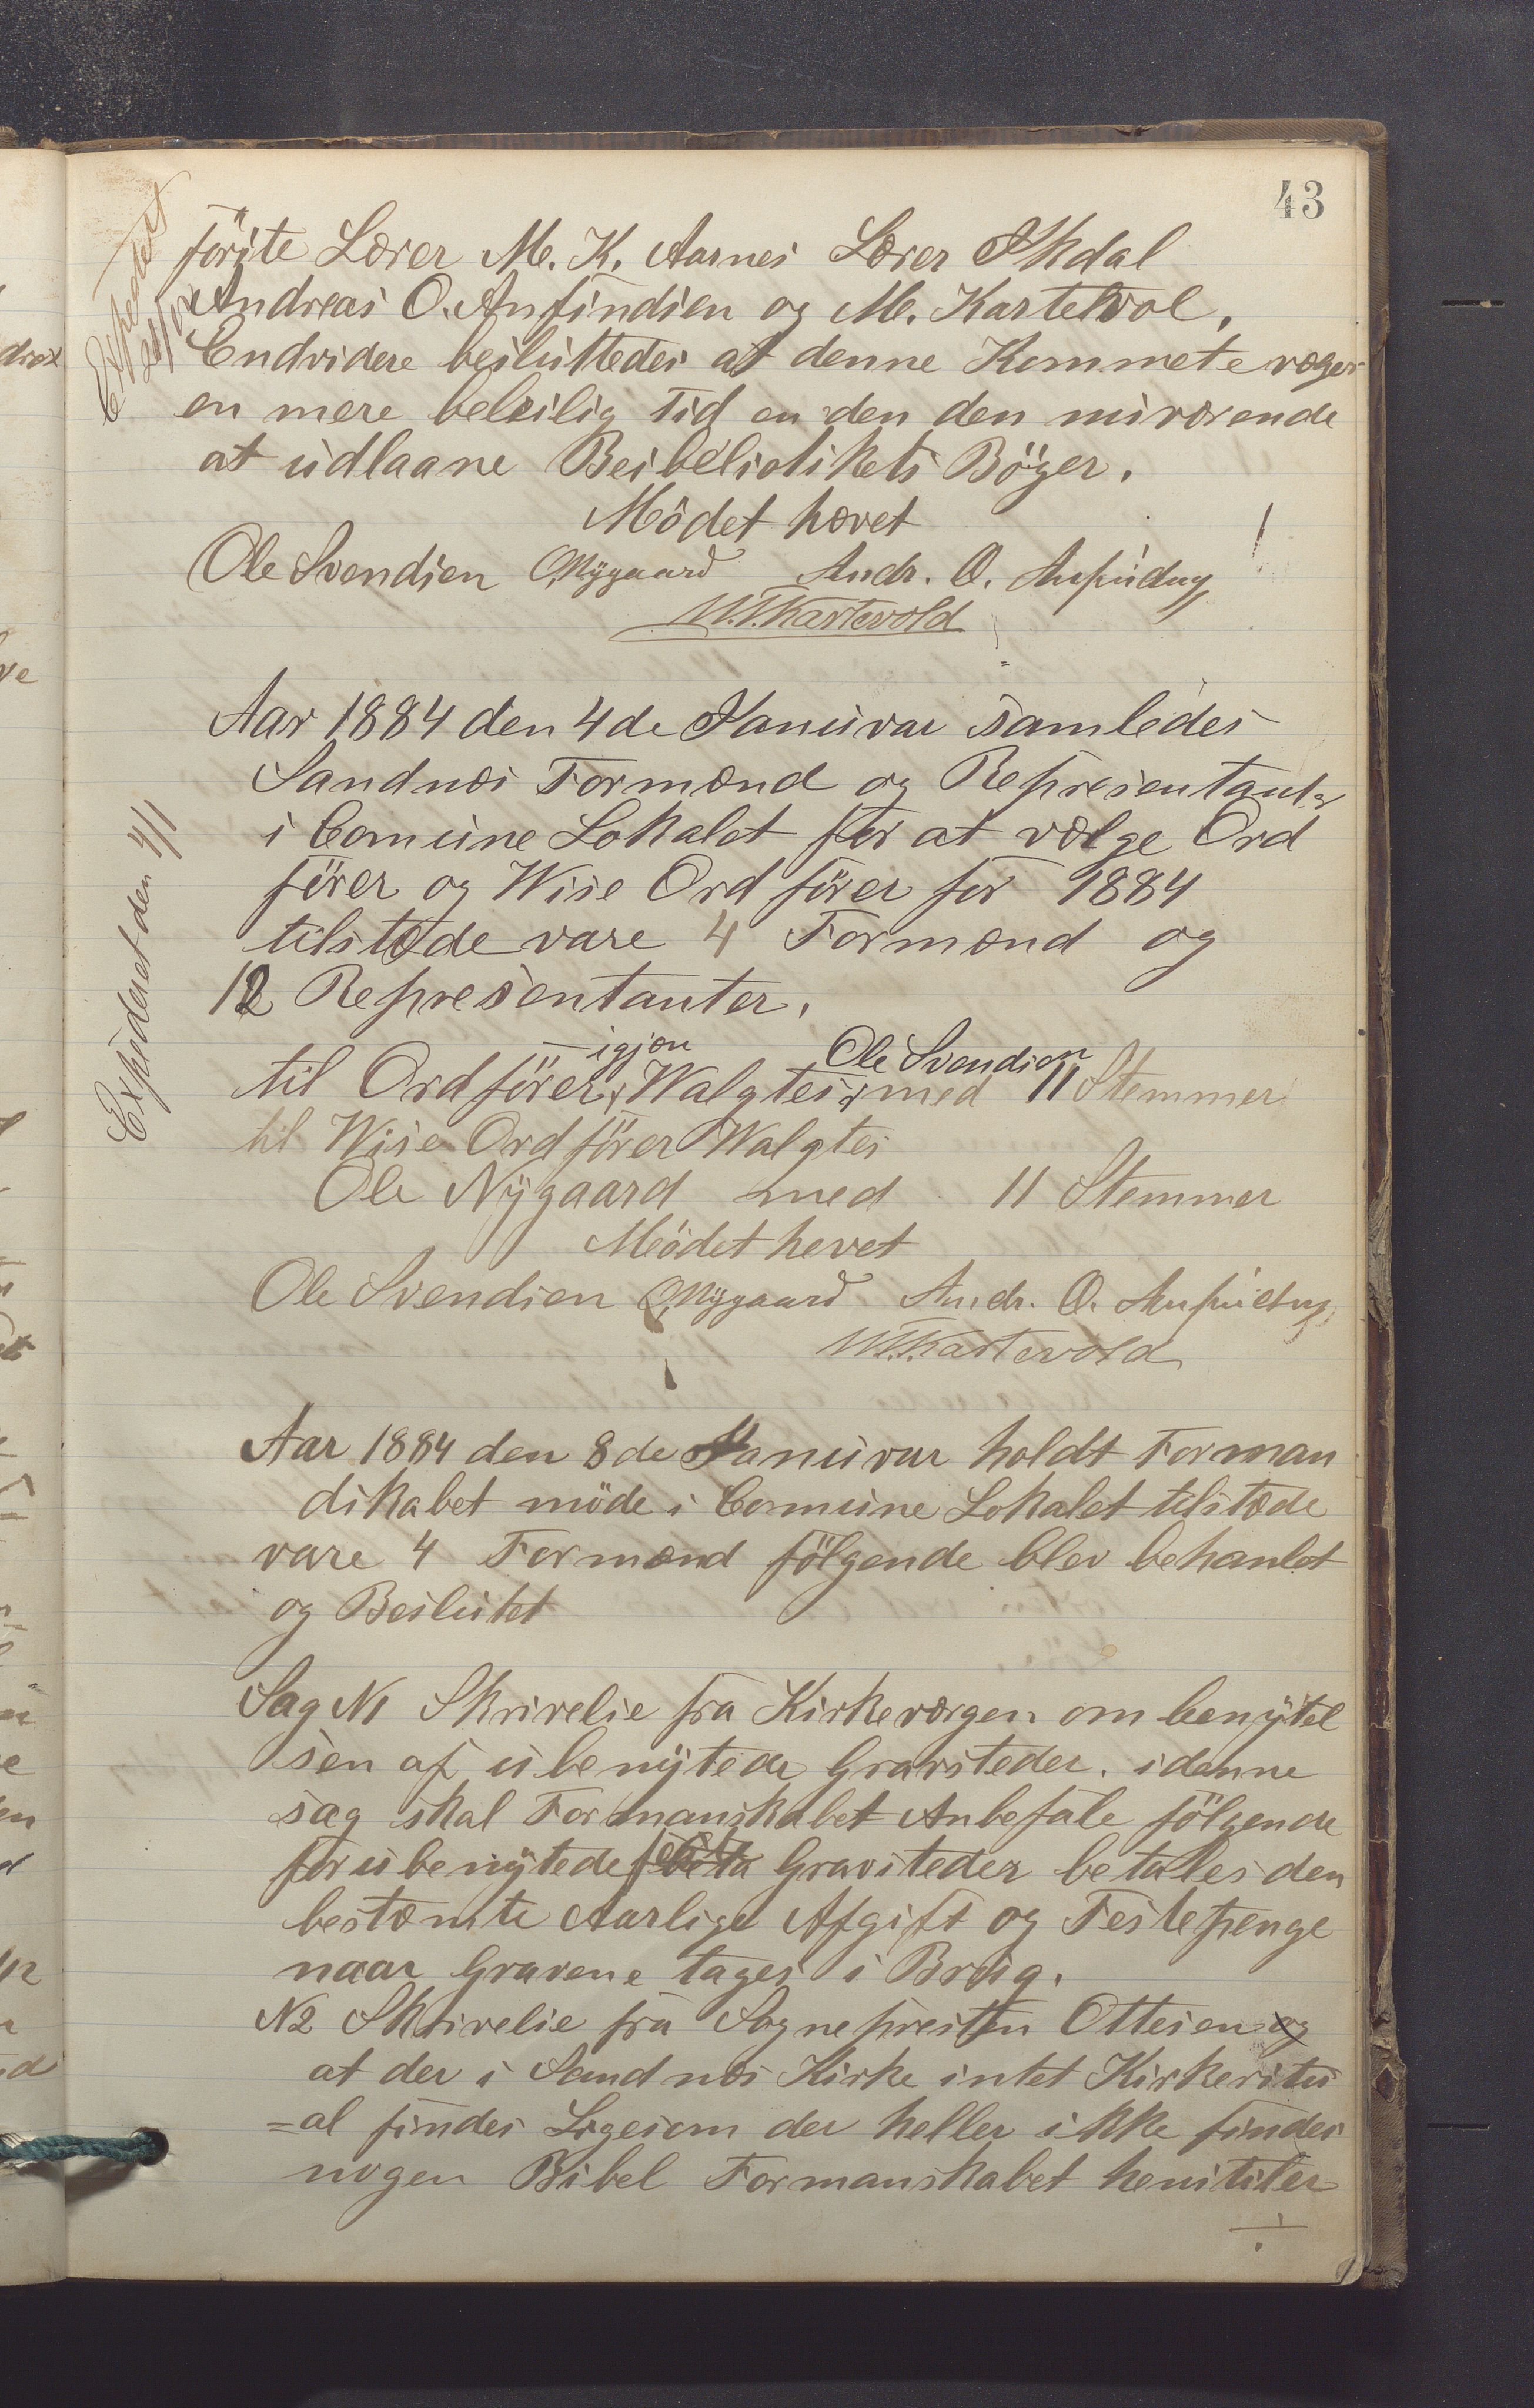 43
förste Lærer M. K. Aarnes Lærer Skdal
Andreas O. Anfindsen og M. Kartevol.
Endvidere besluttedes at denne Kommete væger
en mere beleilig Tid en den den nuværende
at udlaane Beibeliotikets Böger.
Mödet hævet
Ole Svendsen O Nÿgaard Andr. O. Anfindsen
M. T. Kartevold
Expedert
Aar 1884 den 4de Januvar samledes
Sandnæs Formænd og Represientanter
i Comune Lokalet for at vælge Ord
förer og Wise Ord förer for 1884
tilstæde vare 4 Formænd og
12 Representanter.
igjæn Ole Svendsen
til Ordförer Walgtes med 11 Stemmer
til Wise Ordförer Walgtes
Ole Nÿgaard med 11 Stemmer
Mödet hevet
Ole Svendsen O Nÿgaard Andr. O. Anfindsen
M. T. Kartevold
Expideret den 4/1
Aar 1884 den 8de Januvar holdt Forman
dskabet möde i Comune Lokalet tilstæde
vare 4 Formænd fölgende blev behanlet
og Beslutet
Sag N1 Skrivelse fra Kirkeværgen om benÿtel
sen af ubenÿtede Gravsteder. i denne
sag skal Formanskabet Anbefale fölgende
for ubenÿtede Gravsteder betales den
bestæmte Aarlige Afgift og Festepenge
naar Gravene tages i Brug.
N2 Skrivelse fra Sognepresten Ottesen og
at der i Sandnæs Kirke intet Kirkeritu
=al findes Ligesom der heller ikke findes
nogen Bibel Formanskabet henstiler